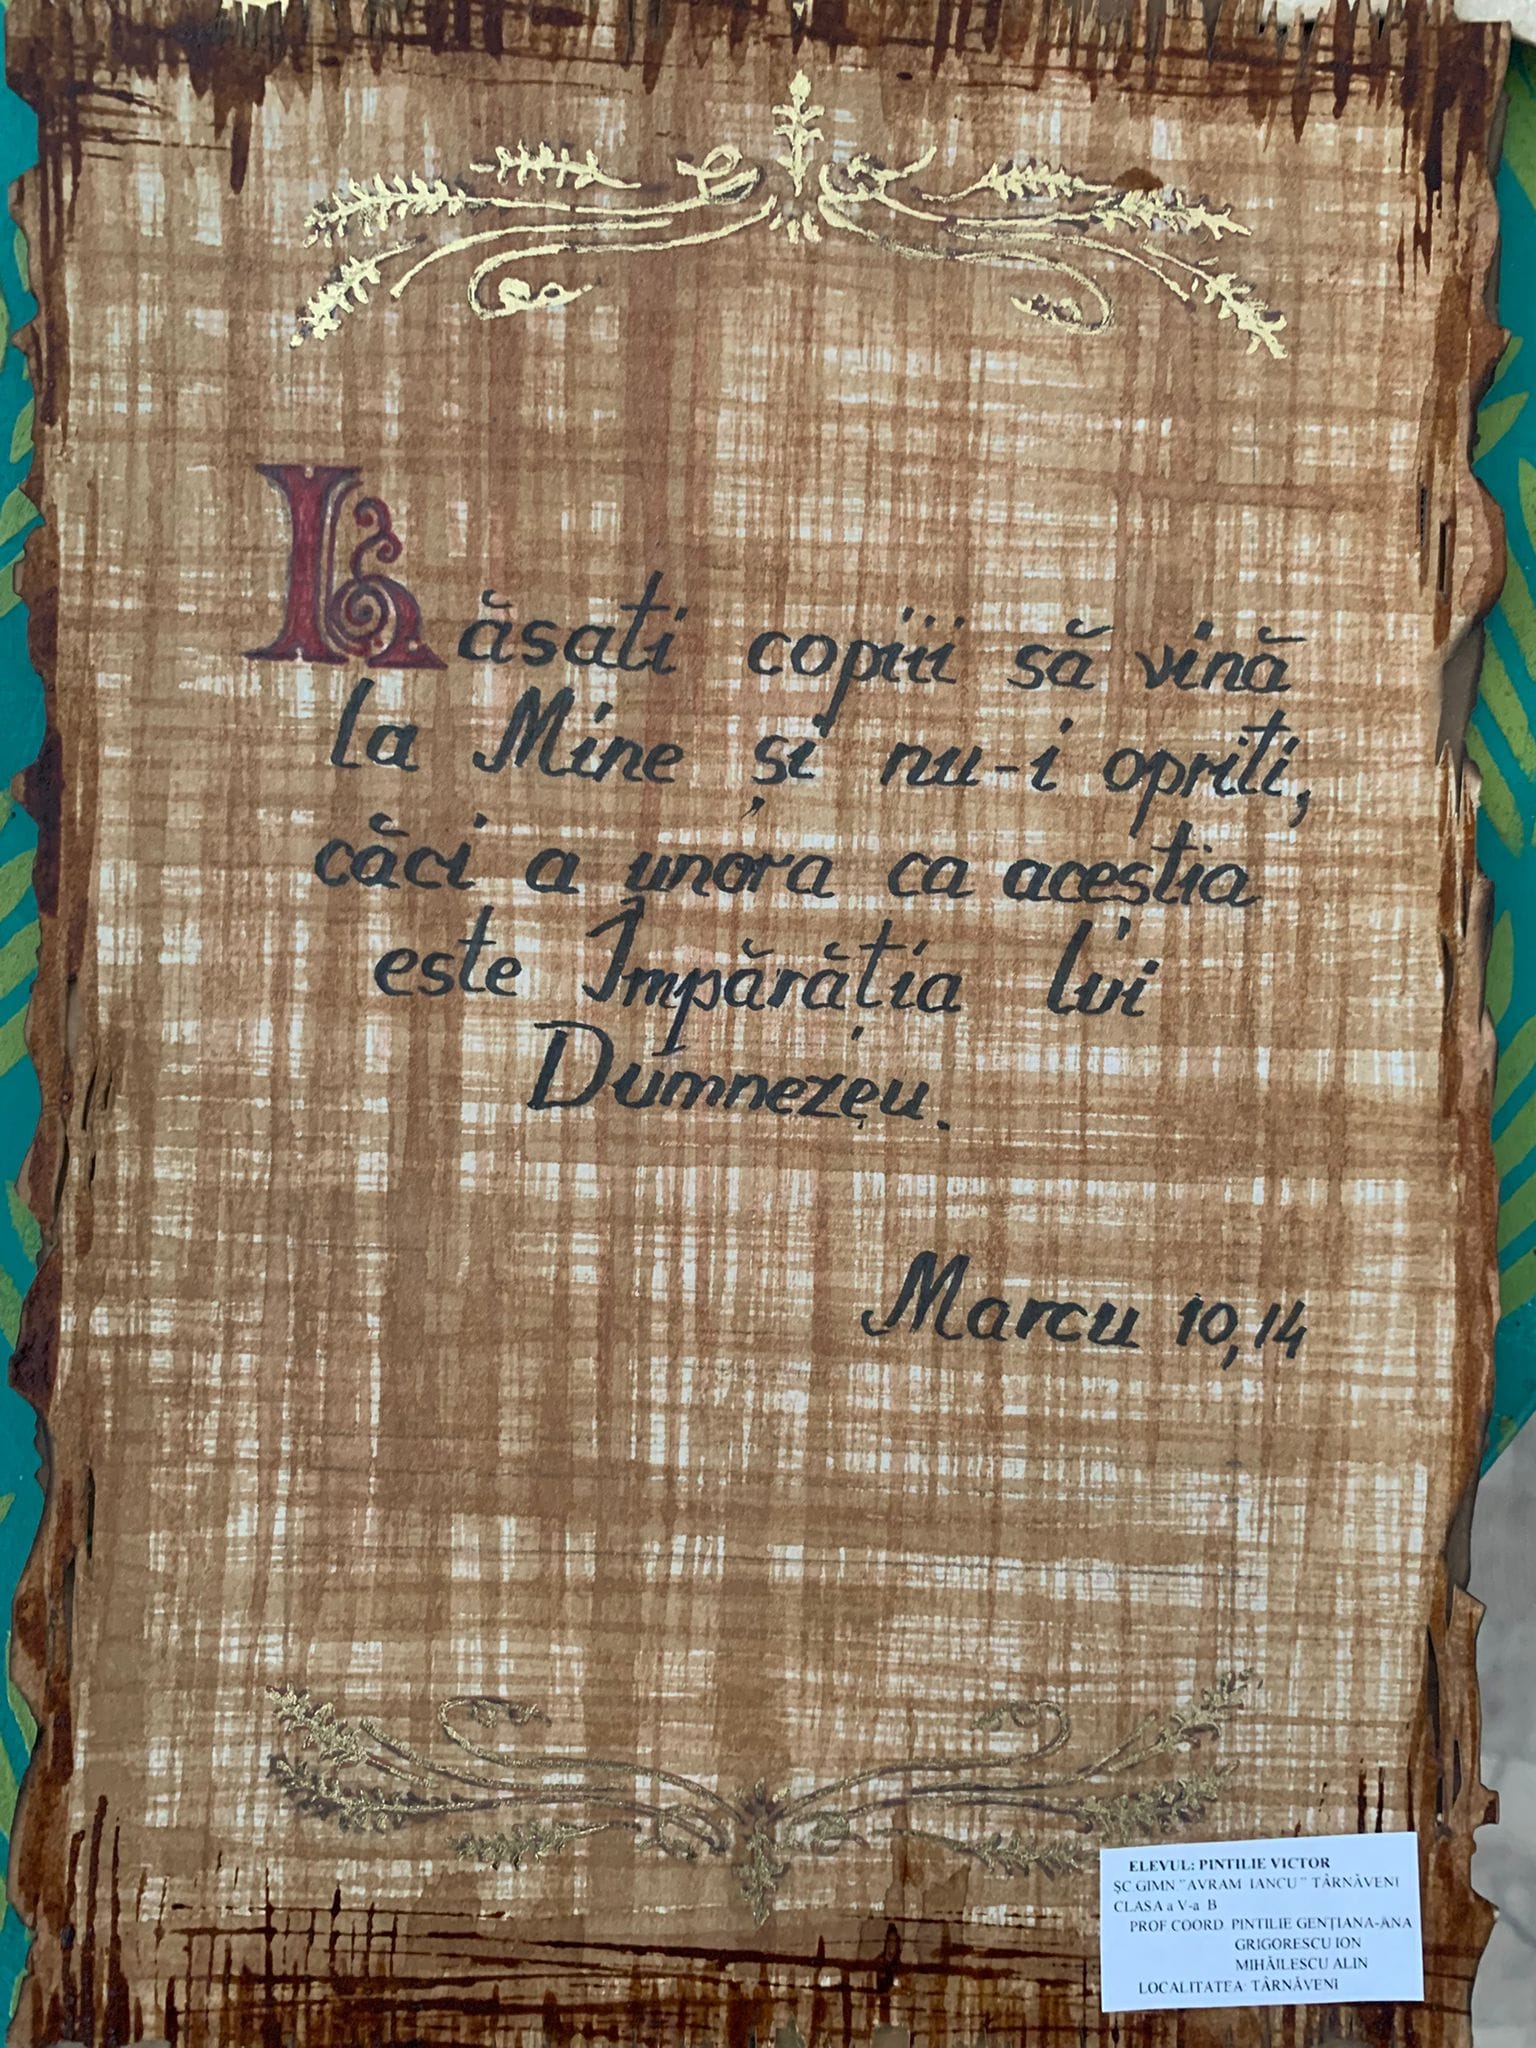 Lăsati copiii să vină
la Mine și nu-i opriti,
căci a unora ca acestia
este Împărăția lui
Dumnezeu.
Marcu 10,14
ELEVUL: PINTILIE VICTOR
ȘC GIMN "AVRAM IANCU" TÂRNĂVENI
CLASA a V-a B
PROF COORD PINTILIE GENȚIANA-ANA
GRIGORESCU ION
MIHĂILESCU ALIN
LOCALITATEA TÂRNĂVENI